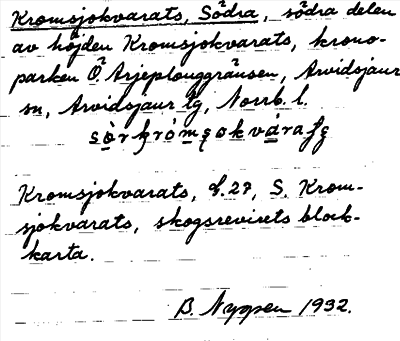 Kromsjokvarats, Södra, södra delen
av höjden Kromsjokvarats, krono-
parken Ö. Arjeplouggränsen, Arvidsjaur
sn, Arvidsjaur lg, Norrb. l.
Kromsjokvarats, bl. 27, S. Krom-
sjokvarats, skogsrevirets block-
karta.
B. Nyppen 1932.